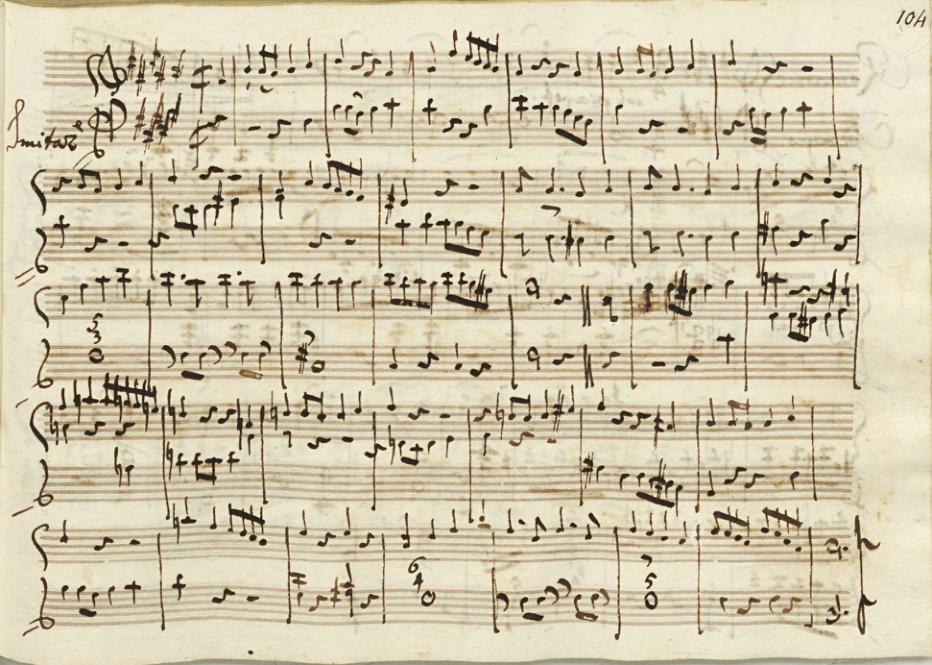 104
Imitazᵉ
5
3
6
4
7
5